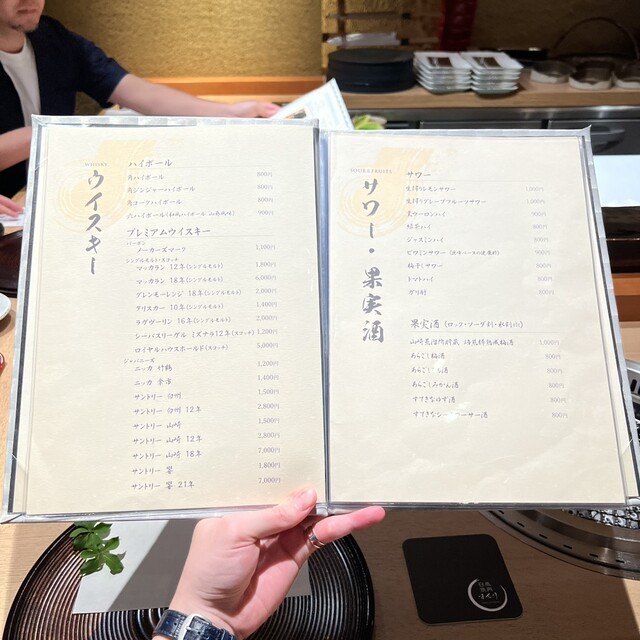 WHISKY
ウイスキー
ハイボール
角ハイボール 800円
角ジンジャーハイボール 800円
角コークハイボール 800円
六ハイボール(和風ハイボール 山椒風味) 900円
プレミアムウイスキー
バーボン
メーカーズマーク 1,100円
シングルモルト・スコッチ
マッカラン 12年(シングルモルト) 1,500円
マッカラン 18年(シングルモルト) 6,000円
グレンモーレンジ 18年(シングルモルト) 2,000円
タリスカー 10年(シングルモルト) 1,400円
ラグヴーリン 16年(シングルモルト) 2,000円
シーバスリーガル ミズナラ12年(スコッチ) 1,200円
ロイヤルハウスホールド(スコッチ) 5,000円
ジャパニーズ
ニッカ 竹鶴 1,200円
ニッカ 余市 1,400円
サントリー 白州 1,500円
サントリー 白州 12年 2,800円
サントリー 山崎 1,500円
サントリー 山崎 12年 2,800円
サントリー 山崎 18年 7,000円
サントリー 響 1,800円
サントリー 響 21年 7,000円
SOUR&FRUITS
サワー・果実酒
サワー
生搾りレモンサワー 1,000円
生搾りグレープフルーツサワー 1,000円
黒ウーロンハイ 900円
緑茶ハイ 800円
ジャスミンハイ 800円
ビワミンサワー 800円
梅干しサワー 800円
トマトハイ 800円
800円
果実酒 (ロック・ソーダ割・水割り)
山崎蒸溜所貯蔵 焙煎樽熟成梅酒 1,000円
あらごし梅酒 800円
あらごし 酒 800円
あらごしみかん酒 800円
すてきなゆず酒 800円
すてきなシークワーサー酒 800円